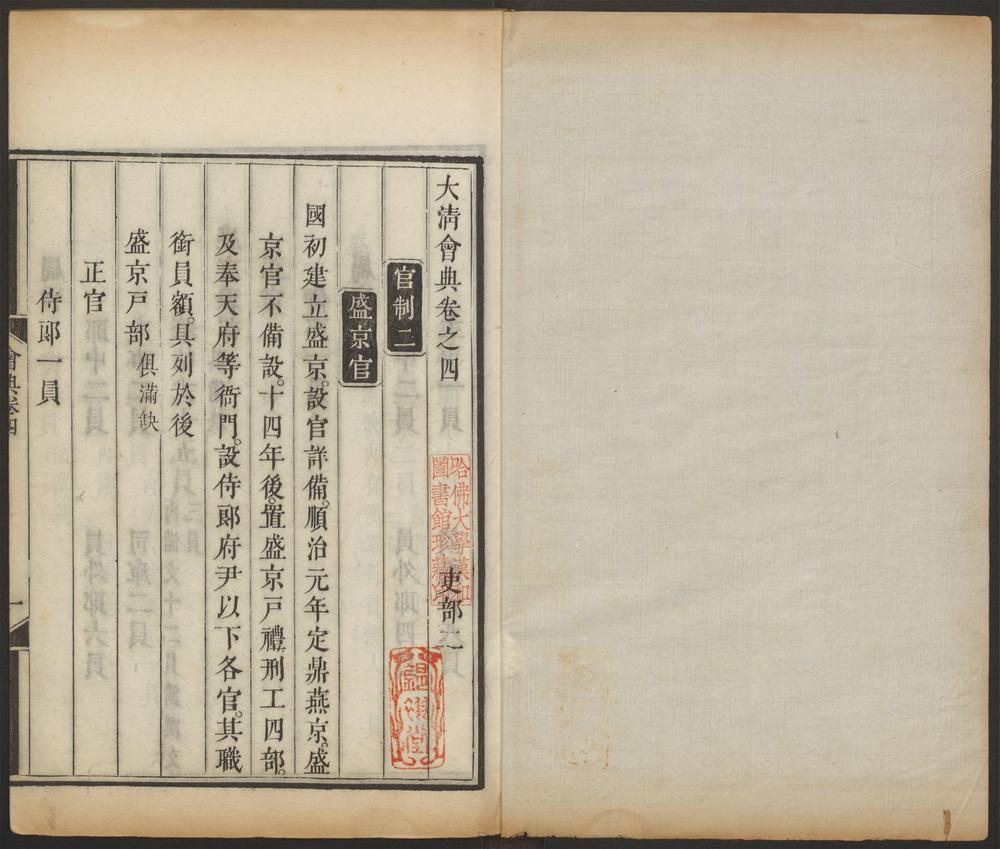 大淸會典卷之四
吏部二
官制二
盛京官
國初建立盛京。設官詳備。順治元年定鼎燕京。盛
京官不備設。十四年後。置盛京戶禮刑工四部。
及奉天府等衙門。設侍郎府尹以下各官。其職
銜員額。具列於後
盛京戶部俱滿缺
正官
侍郎一員
會典卷四
一
哈佛大學漢和
圖書館珍藏印